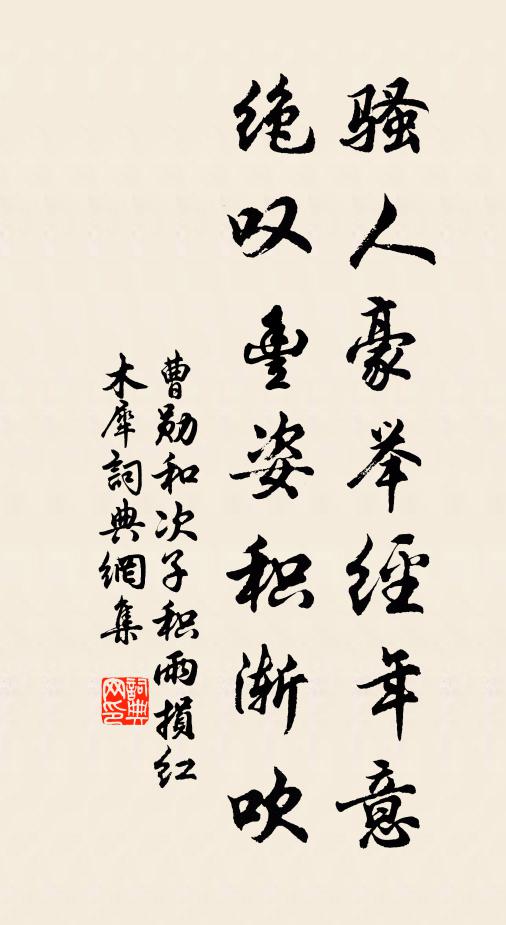 骚人豪举经年意
绝叹丰姿积渐吹
曹勋和次子积雨损红
木犀词典網集
詞典
网印